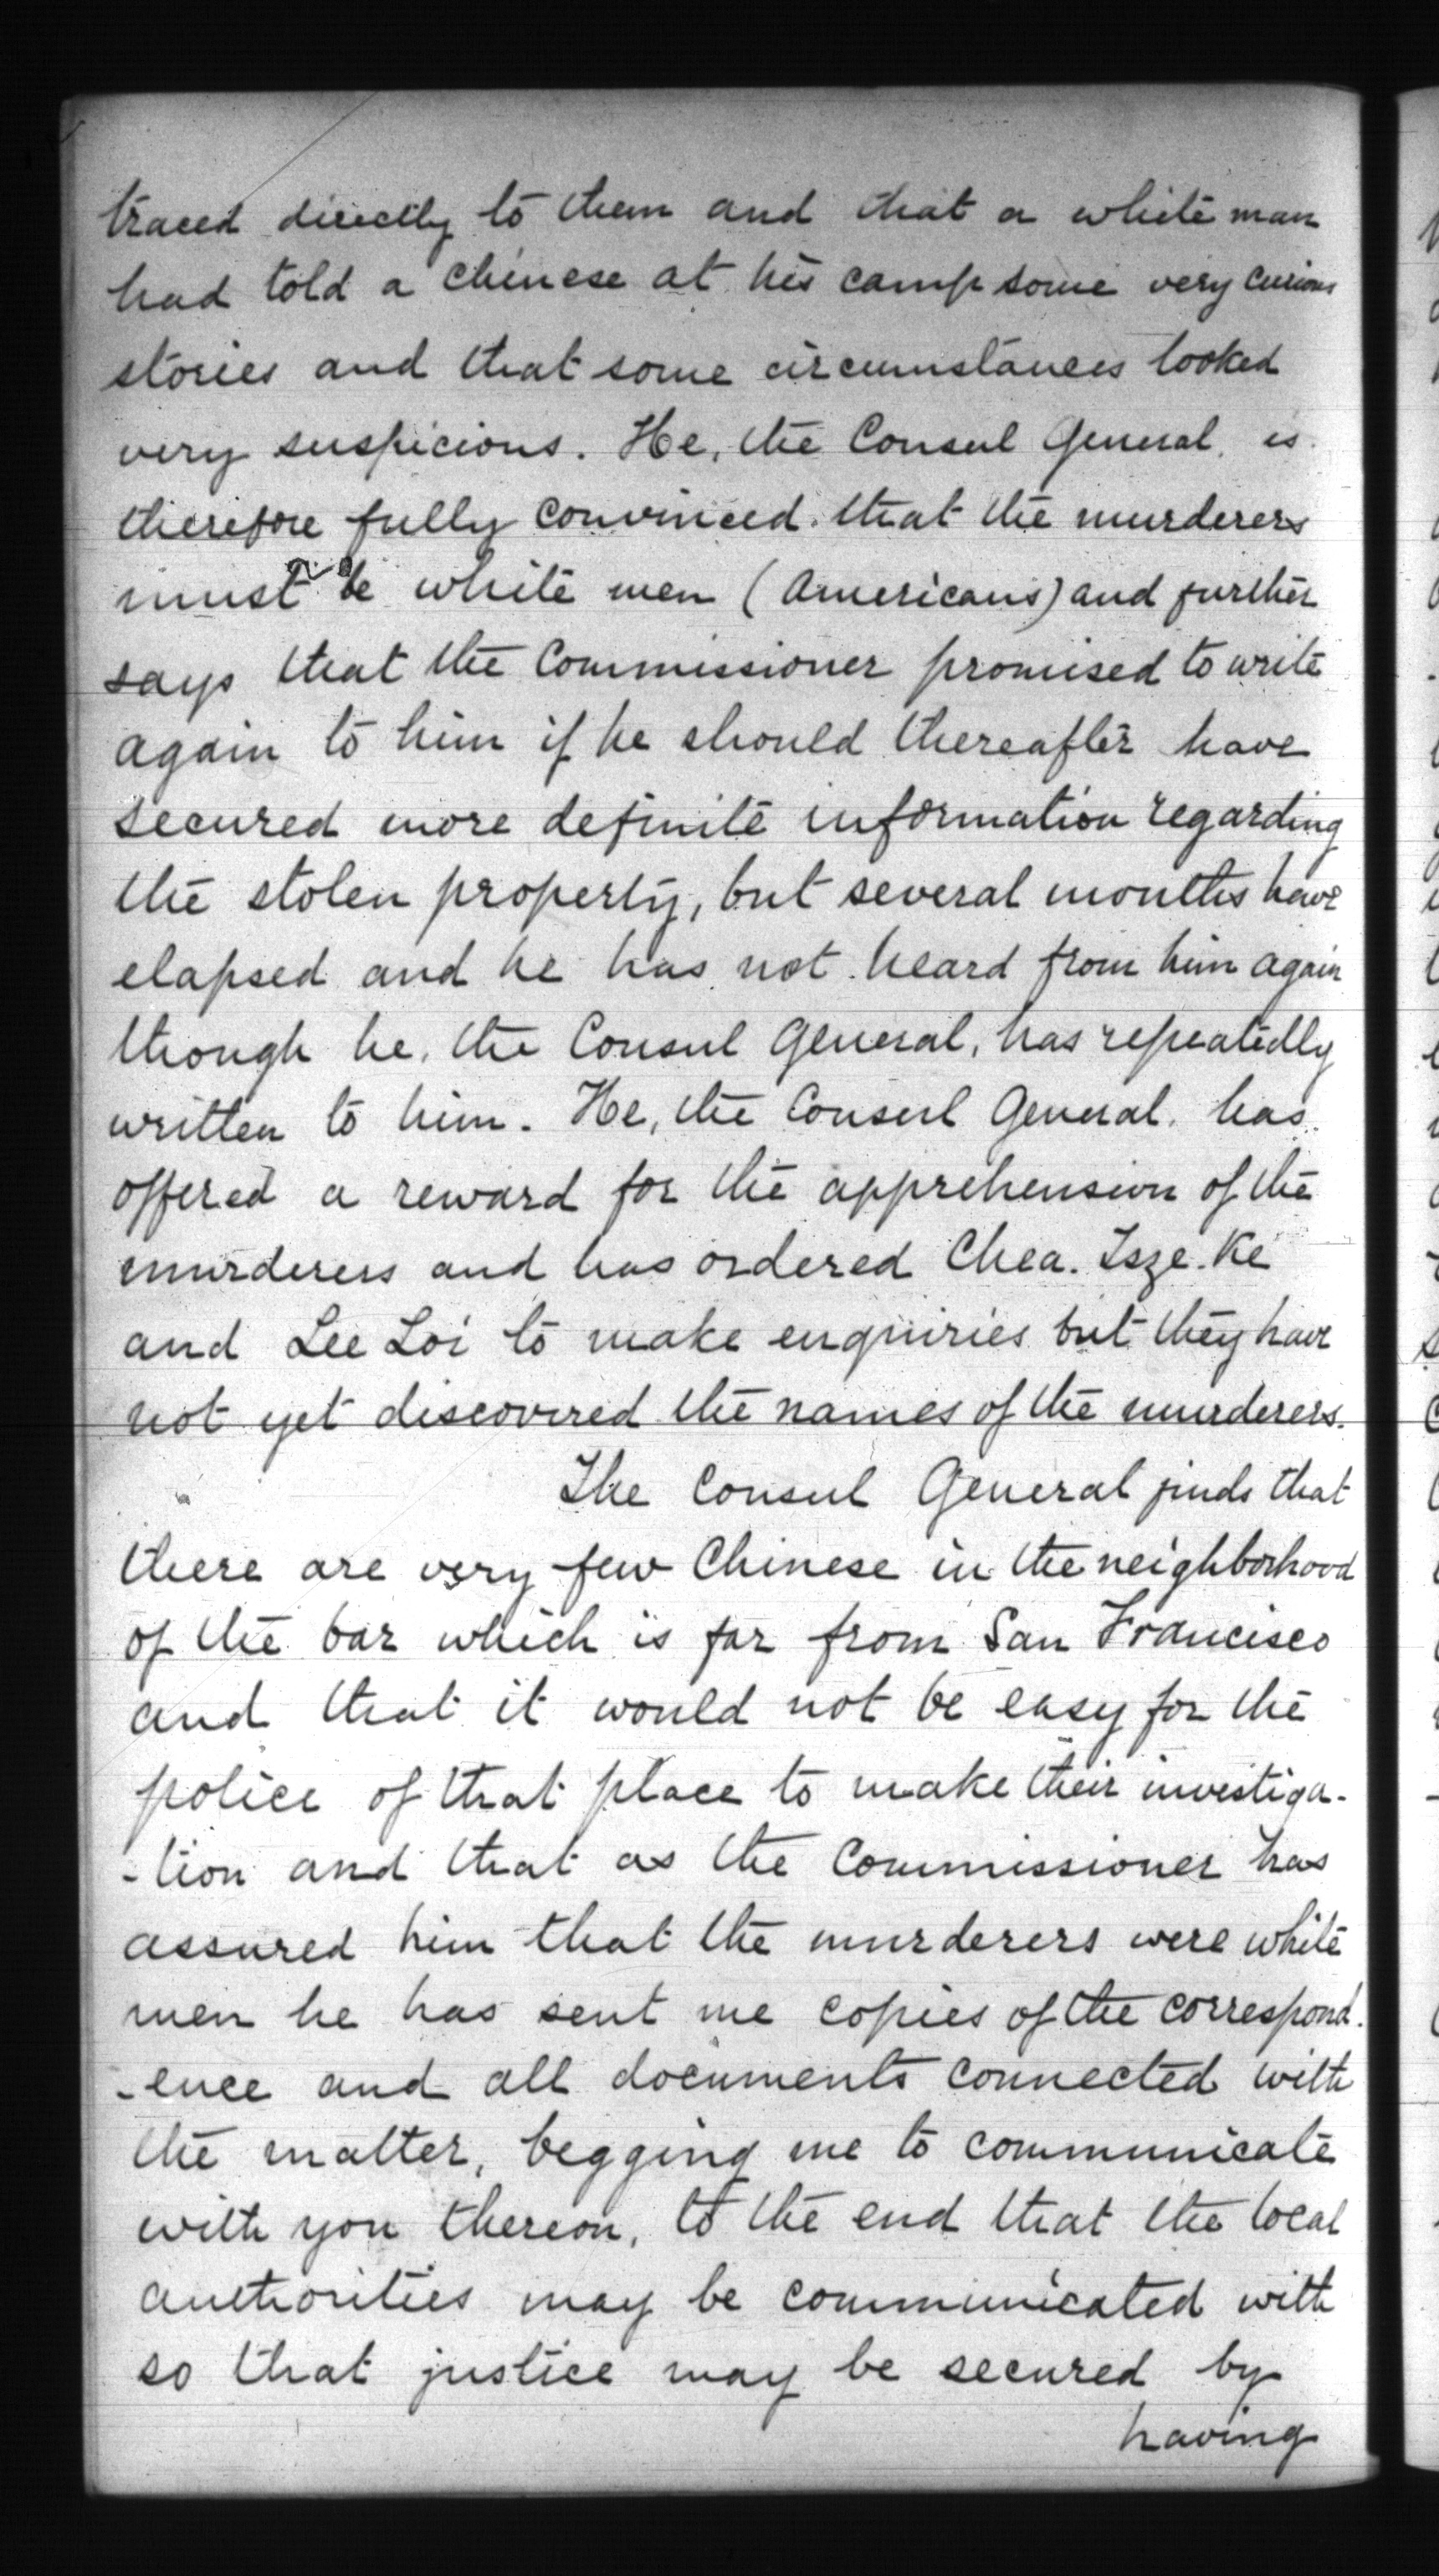 traced directly to them and that a white man
had told a Chinese at his camp some very curious
stories and that some circumstances looked
very suspicious. He, the Consul General, is
therefore fully convinced that the murderers
must be white men (Americans) and further
says that the Commissioner promised to write
again to him if he should thereafter have
secured more definite information regarding
the stolen property, but several months have
elapsed and he has not heard from him again
though he, the Consul General, has repeatedly
written to him. He, the Consul General, has
offered a reward for the apprehension of the
murderers and has ordered Chea. Tsze. Ke
and Lee Loi to make enquiries but they have
not yet discovered the names of the murderers.
The Consul General finds that
there are very few Chinese in the neighborhood
of the bar which is far from San Francisco
and that it would not be easy for the
police of that place to make their investiga-
-tion and that as the Commissioner has
assured him that the murderers were white
men he has sent me copies of the correspond-
-ence and all documents connected with
the matter, begging me to communicate
with you thereon, to the end that the local
authorities may be communicated with
so that justice may be secured by
having